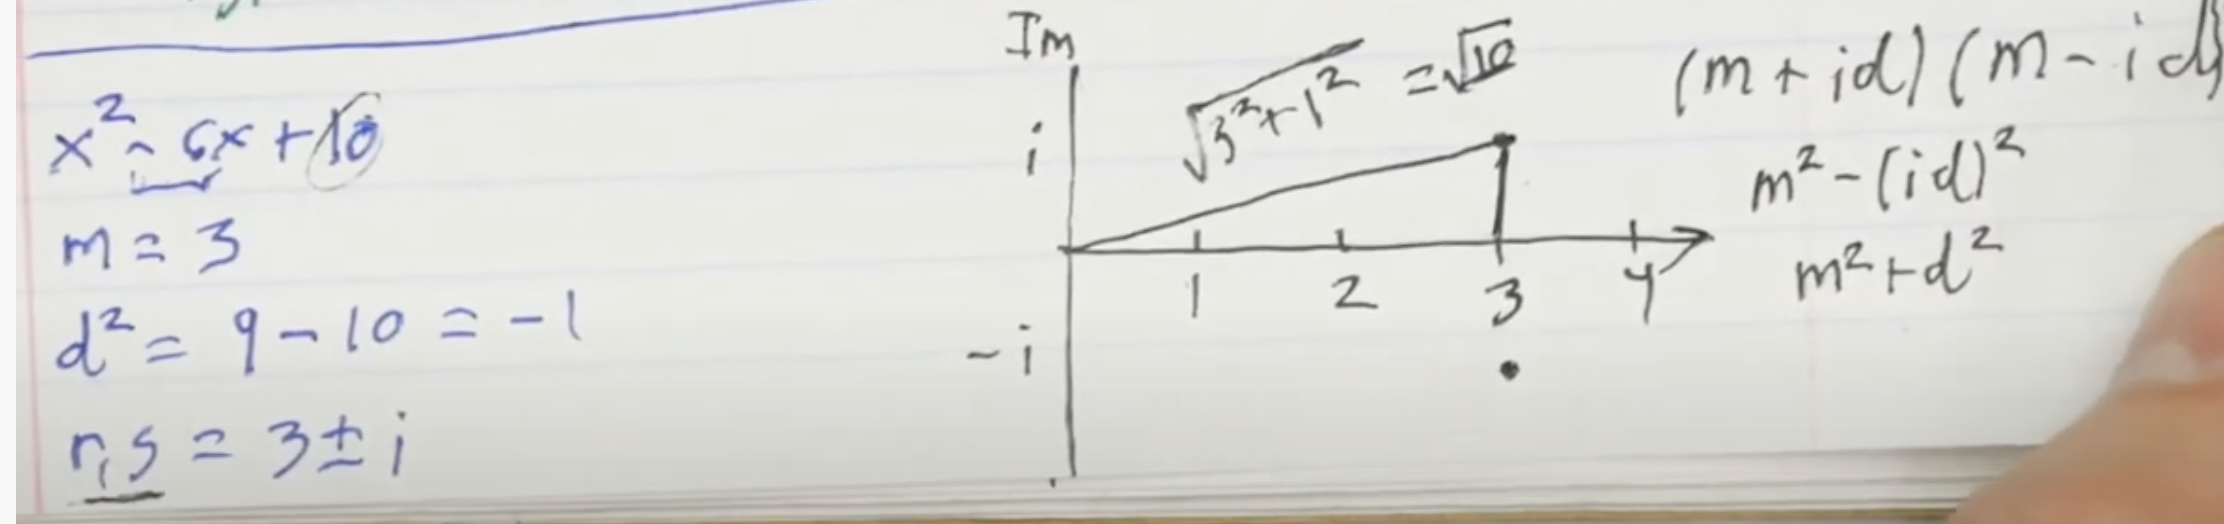 x² - 6x + 10
m = 3
d² = 9 - 10 = -1
r,s = 3 ± i
Im
i
-i
√3²+1² = √10
1 2 3 4
(m + id)(m - id)
m² - (id)²
m² + d²